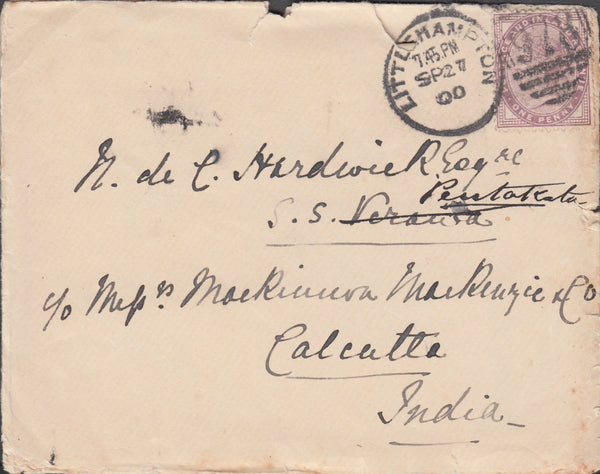 LITTLEHAMPTON
7.45.PM
SP27
00
ONE PENNY
N. de C. Hardwick Esqre
Pentakota
S.S. Verawa
c/o Messrs Mackinnon Mackenzie & Co
Calcutta
India